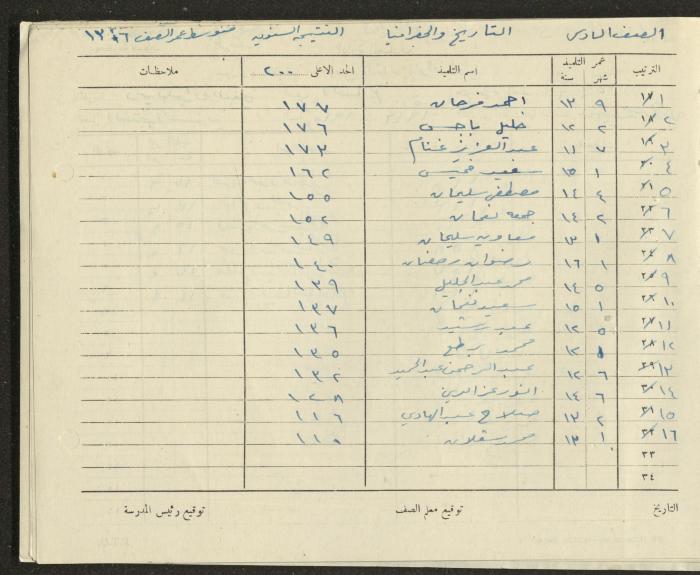 الصف السادس التاريخ والجغرافيا النتيجة السنوية متوسط عمر الصف
الترتيب عمر التلميذ شهر سنة اسم التلميذ الحد الاعلى ٢٠٠ ملاحظات
١ ٩ ١٣ احمد فرحان ١٧٧
٢ ٢ ١٢ خليل ياسين ١٧٦
٣ ٧ ١١ عبد العزيز غنام ١٧٣
٤ ١ ١٥ سعيد خميس ١٦٢
٥ ٤ ١٤ مصطفى سليمان ١٥٥
٦ ٢ ١٤ جمعه نعمان ١٥٢
٧ ١ ١٣ سليمان ١٤٩
٨ ١ ١٦ رضوان رمضان ١٤٠
٩ ٥ ١٤ محمد عبد الجليل ١٣٩
١٠ ١ ١٥ سعيد ١٣٧
١١ ٥ ١٢ رشيد ١٣٦
١٢ ١٢ محمد ١٣٥
١٣ ٦ ١٢ عبد الرحمن عبد الحميد ١٣٢
١٤ ٦ ١٤ عز الدين ١٢٨
١٥ ٢ ١٣ صلاح عبد الهادي ١١٦
١٦ ١ ١٣ محمد ١١٠
٣٣
٣٤
التاريخ توقيع معلم الصف توقيع رئيس المدرسة